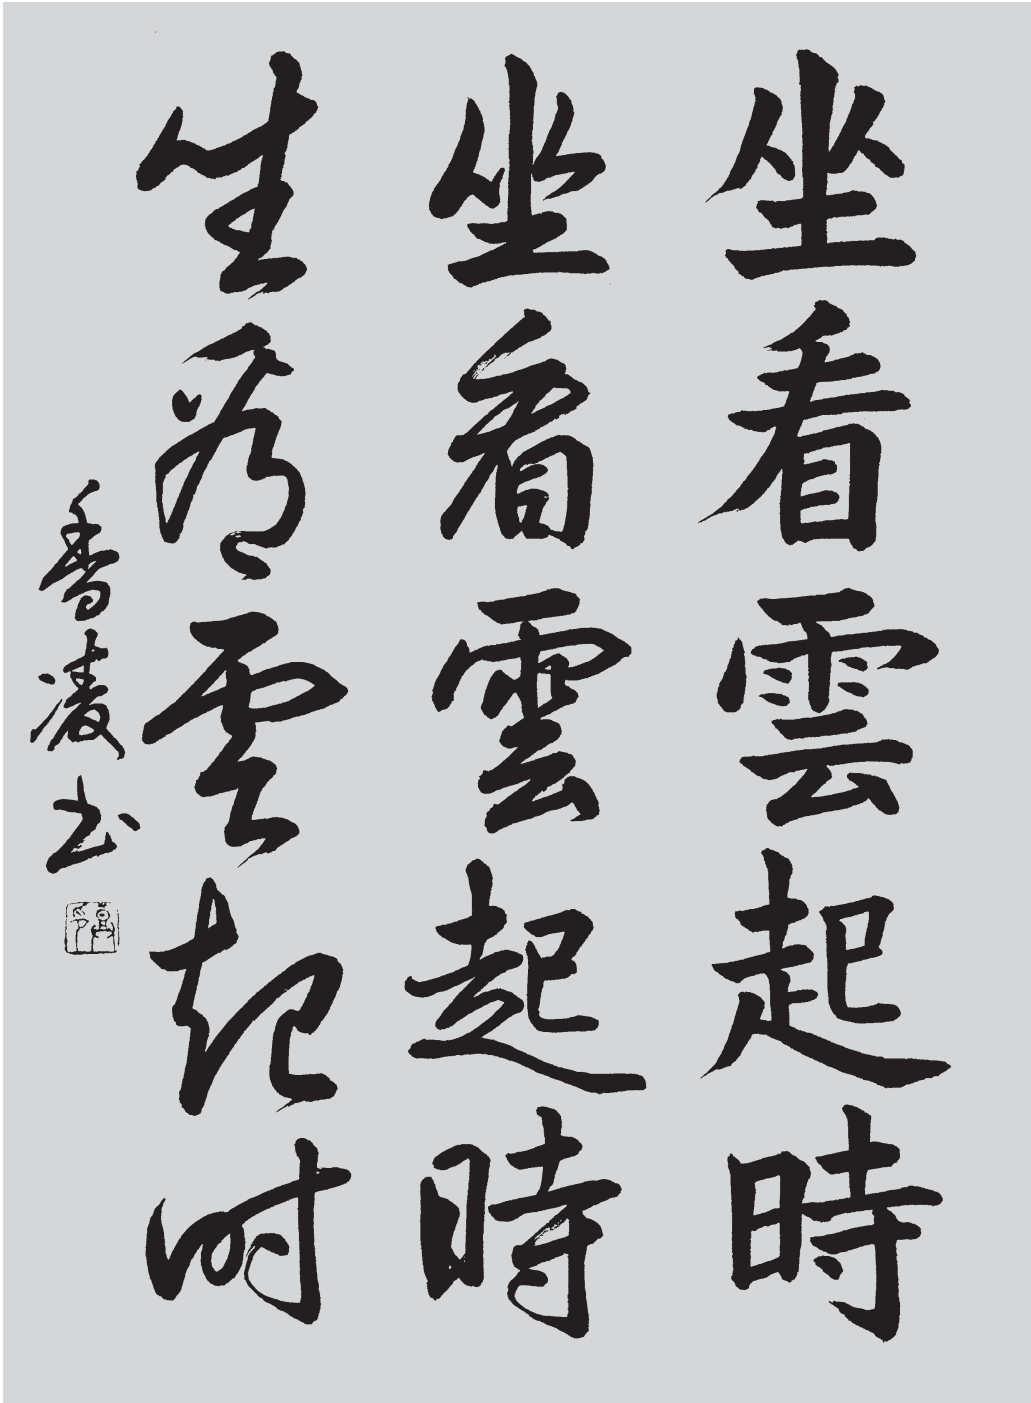 坐看雲起時
坐看雲起時
坐看雲起時
香凌书